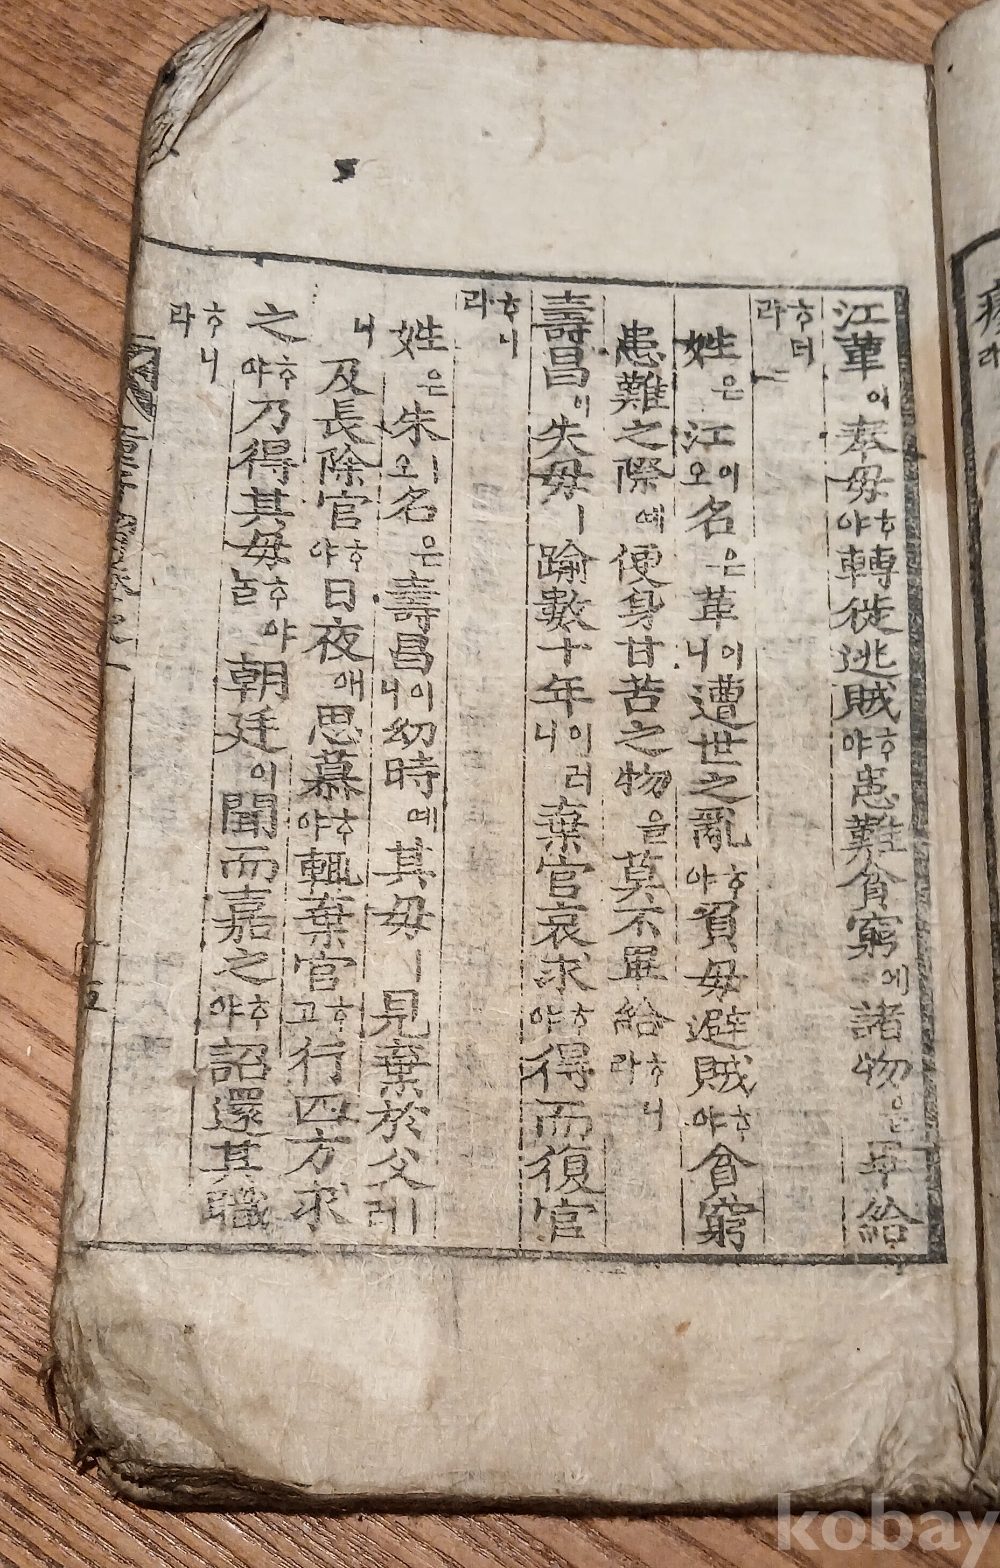 江革이奉毋ᄒᆞ야轉從逃賊ᄒᆞ야患難貧窮에諸物은畢給
ᄒᆞ더라
姓은江이오名은革이니遭世之亂ᄒᆞ야負母避賊ᄒᆞ야貧窮
患難之際예便身甘苦之物을莫不畢給ᄒᆞ니라
壽昌이失母ㅣ踰數十年이러니棄官哀求ᄒᆞ야得而復官
ᄒᆞ니라
姓은朱ㅣ오名은壽昌이니幼時에其母ㅣ見棄於父ㅣ러
니及長除官ᄒᆞ야日夜애思慕ᄒᆞ야輒棄官ᄒᆞ고行四方求
之ᄒᆞ야乃得其母ᄒᆞ야ᄂᆞᆯ朝廷이聞而嘉之ᄒᆞ야詔還其職
ᄒᆞ니라
kobay